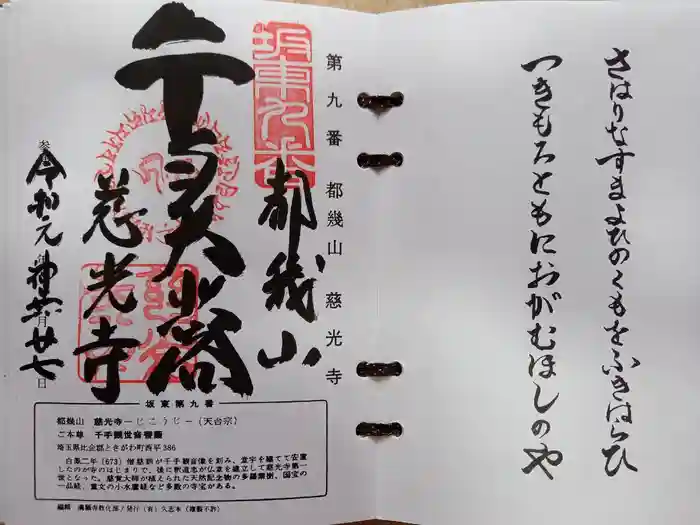 さはりなすまよひのくもをふきはらひ
つきもろともにおがむほしのや
第九番 都幾山 慈光寺
坂東九番
都幾山
慈光寺
令和元
廿七日
坂東第九番
都幾山 慈光寺―じこうじ―(天台宗)
ご本尊 千手観世音菩薩
埼玉県比企郡ときがわ町西平386
白鳳二年(673)僧慈訓が千手観音像を刻み、堂宇を建てて安置
したのが寺のはじまりで、後に釈道忠が仏堂を建立して慈光寺第一
世となった。慈覚大師が植えられた天然記念物の多羅葉樹、国宝の
一品経、重文の小水麗経など多数の寺宝がある。
編輯 満願寺教化部/発行(有)久志本(複製不許)